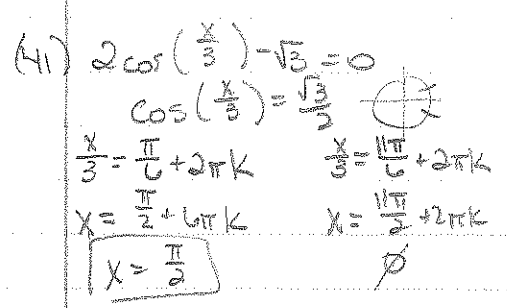 (41) 2cos(x/3) - √3 = 0
cos(x/3) = √3/2
x/3 = π/6 + 2πk    x/3 = 11π/6 + 2πk
x = π/2 + 6πk    x = 11π/2 + 2πk
x = π/2    ∅